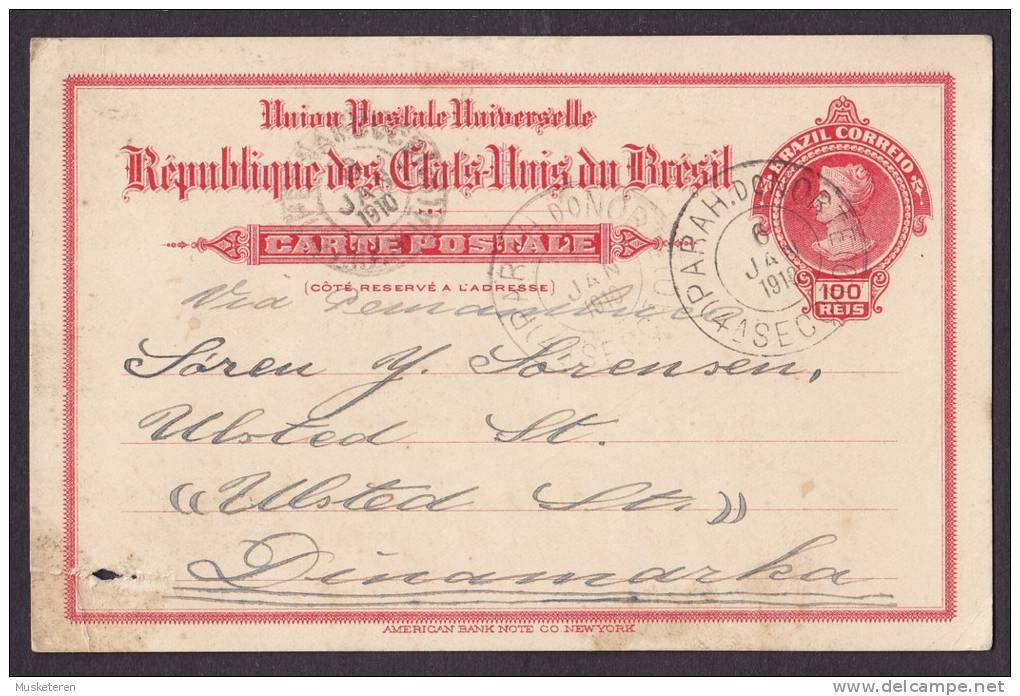 Union Postale Universelle
République des États-Unis du Brésil
BRAZIL CORREIO
100
REIS
CARTE POSTALE
(CÔTÉ RESERVÉ A L'ADRESSE)
JAN
1910
(PARAH. DO NORTE)
6
JAN
1910
(4ª SEC
JAN
1910
Via Pernambuco
Søren Y. Sørensen,
Ulsted St.
"Ulsted St."
Dinamarka
AMERICAN BANK NOTE CO. NEW YORK
Musketeren
delcampe.net